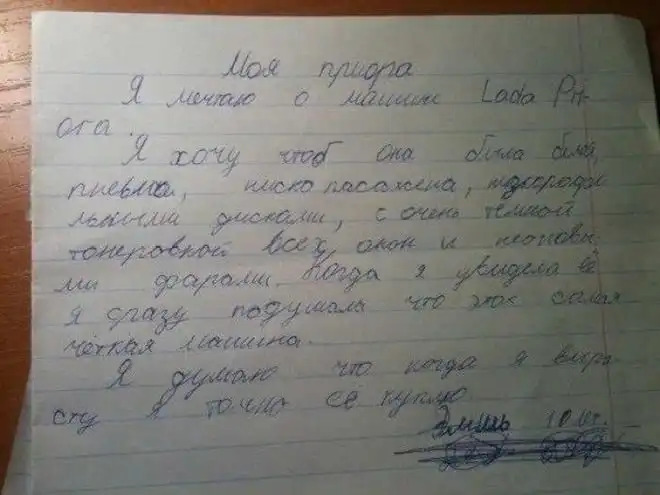 Моя приора
Я мечтаю о машине Lada Pri-
ora.
Я хочу чтоб она была белая,
пневма, ниско пасажена,
льными дисками, с очень темной
тонеровкой всех окон и неоновы-
ми фарами. Когда я увидела её
я сразу подумала что это самая
чёткая машина.
Я думаю что когда я выра-
сту я точно её куплю
10 лет.